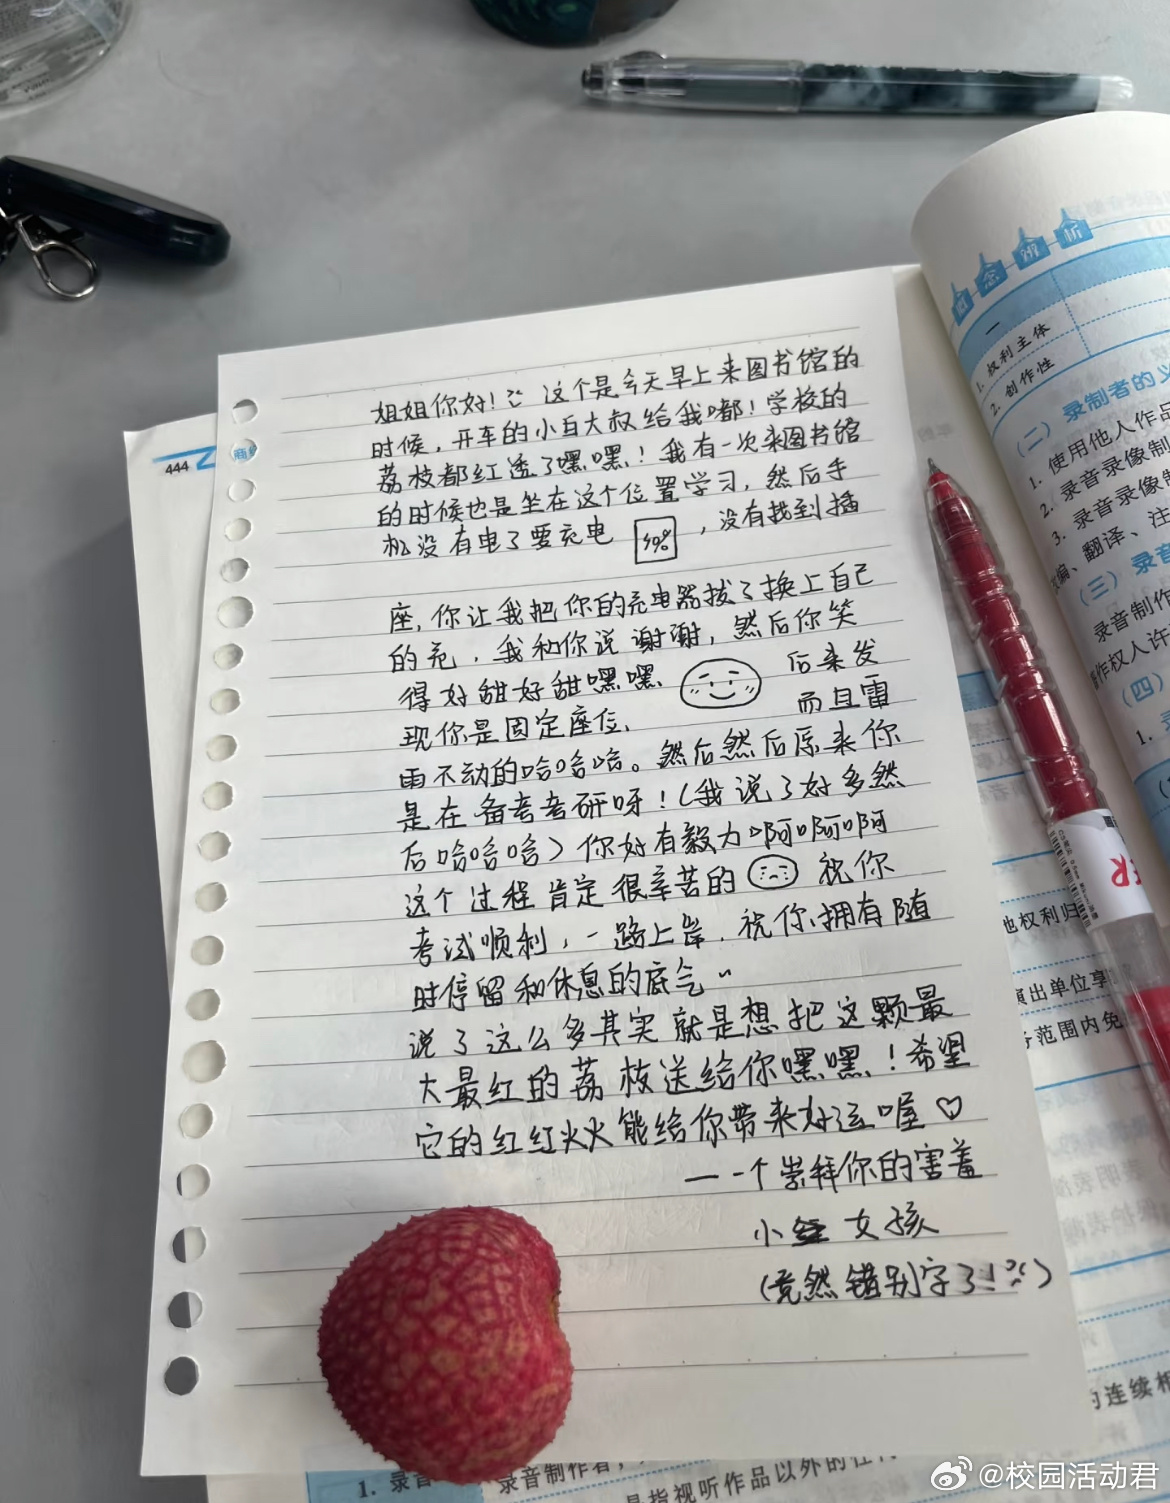 姐姐你好！这个是今天早上来图书馆的
时候，开车的小白大叔给我嘟！学校的
荔枝都红透了嘿嘿！我有一次来图书馆
的时候也是坐在这个位置学习，然后手
机没有电了要充电，没有找到插
座，你让我把你的充电器拔了换上自己
的充，我和你说谢谢，然后你笑
得好甜好甜嘿嘿 后来发
现你是固定座位、 而且雷
雨不动的哈哈哈。然后然后原来你
是在备考考研呀！（我说了好多然
后哈哈哈）你好有毅力啊啊啊
这个过程肯定很辛苦的 祝你
考试顺利，一路上岸，祝你拥有随
时停留和休息的底气~
说了这么多其实就是想把这颗最
大最红的荔枝送给你嘿嘿！希望
它的红红火火能给你带来好运喔♡
——一个崇拜你的害羞
小女孩
（竟然错别字了！:(）
444
念辨析
一
1. 权利主体
2. 创作性
（二）录制者的义
1. 使用他人作品
2. 录音录像制
3. 录音录像制
编、翻译、注
（三）录音
录音制作
作权人许
（四）
1.
也权利归
演出单位享
务范围内免
的连续相
1. 录音
录音制作者，
是指视听作品以外的任
@校园活动君